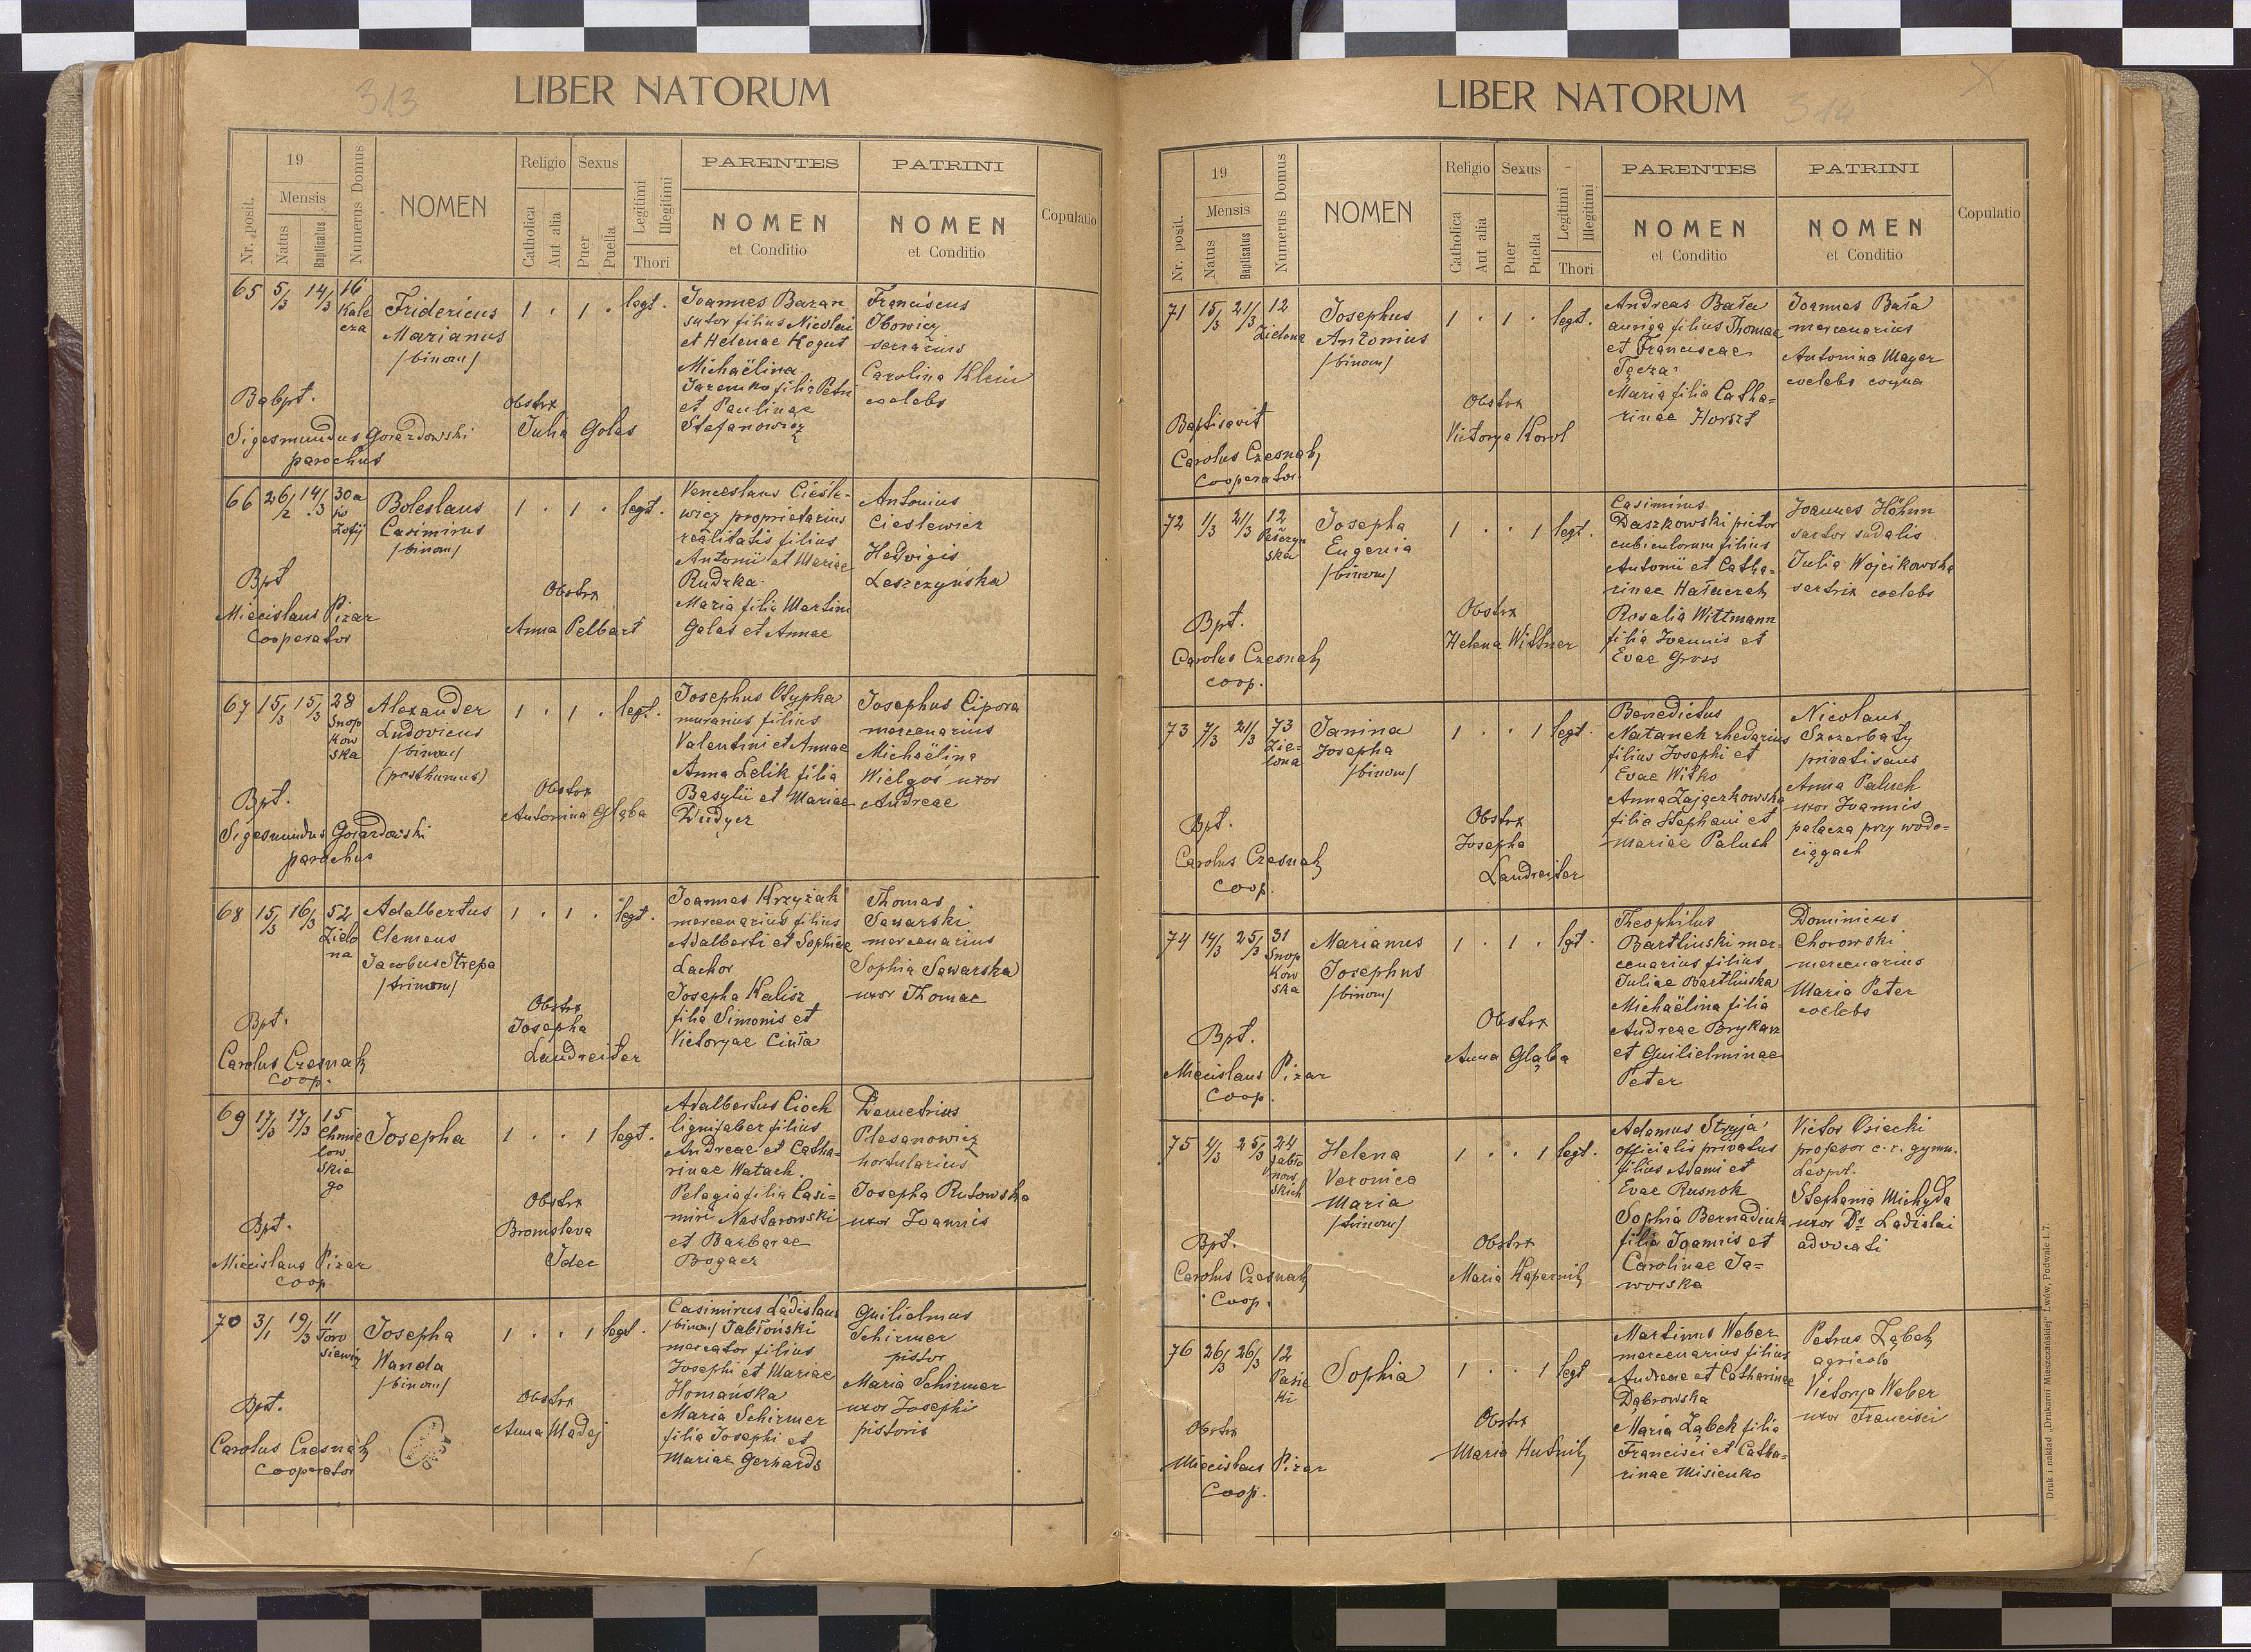 313
LIBER NATORUM
Nr. posit.
19
Mensis
Natus
Baptisatus
Numerus Domus
NOMEN
Religio
Catholica
Aut alia
Sexus
Puer
Puella
Legitimi
Illegitimi
Thori
PARENTES
NOMEN
et Conditio
PATRINI
NOMEN
et Conditio
Copulatio
65 5/3 14/3 16
Kale
cza
Fridericus
Marianus
/binom/
1 . 1 . legt.
Joannes Baran
sutor filius Nicolai
et Helenae Kogut
Michaëlina
Jaremko filia Petri
et Paulinae
Stefanowicz
Franciscus
serrarius
Carolina Klein
coelebs
Babpt.
Sigesmundus Gorazdowski
parochus
Obstrx
Julia Golas
66 26/2 14/3 30a
św
Zofij
Boleslaus
Casimirus
/binom/
1 . 1 . legt.
Venceslaus Cieśle-
wicz proprietarius
realitatis filius
Antonii et Mariae
Rudzka.
Maria filia Martini
Galas et Annae
Antonius
Cieslewicz
Hedvigis
Leszczyńska
Bpt
Miecislaus Pizar
Cooperator
Obstrx
Anna Pelbart
67 15/3 15/3 28
Snop
kow
ska
Alexander
Ludovicus
/binom/
(posthumus)
1 . 1 . legt.
Josephus Olypka
murarius filius
Valentini et Annae
Anna Lelik filia
Basylii et Mariae
Dudycz
Josephus Cipora
mercenarius
Michaëlina
Wielgoś uxor
Andreae
Bpt.
Sigesmundus Gorazdowski
parochus
Obstrx
Antonina Głąba
68 15/3 16/3 52
Zielo
na
Adalbertus
Clemens
Jacobus Strepa
/trinom/
1 . 1 . legt.
Joannes Krzyżak
mercenarius filius
Adalberti et Sophiae
Lachor
Josepha Kalisz
filia Simonis et
Victoryae Ciuła
Thomas
Sawarski
mercenarius
Sophia Sawarska
uxor Thomae
Bpt.
Carolus Czesnak
coop.
Obstrx
Josepha
Landreiter
69 17/3 17/3 15
Chmie
low
skie
go
Josepha
1 . . 1 legt.
Adalbertus Cioch
lignifaber filius
Andreae et Catha-
rinae Watach.
Pelagia filia Casi-
miri Nastarowski
et Barbarae
Bogacz
Demetrius
Plesanowicz
hortularius
Josepha Rutowska
uxor Joannis
Bpt.
Miecislaus Pizar
coop.
Obstrx
Bronislava
Udec
70 3/1 19/3 11
Toro
siewicz
Josepha
Wanda
/binom/
1 . . 1 legt.
Casimirus Ladislaus
/binom/ Jabłoński
mercator filius
Josephi et Mariae
Homańska
Maria Schirmer
filia Josephi et
Mariae Gerhards
Guilielmus
Schirmer
pistor
Maria Schirmer
uxor Josephi
pistoris
Bpt.
Carolus Czesnak
Cooperator
Obstrx
Anna Madej
LIBER NATORUM
314
X
Nr. posit.
19
Mensis
Natus
Baptisatus
Numerus Domus
NOMEN
Religio
Catholica
Aut alia
Sexus
Puer
Puella
Legitimi
Illegitimi
Thori
PARENTES
NOMEN
et Conditio
PATRINI
NOMEN
et Conditio
Copulatio
71 15/3 21/3 12
Zielona
Josephus
Antonius
/binom/
1 . 1 . legt.
Andreas Bała
auriga filius Thomae
et Franciscae
Tęcza
Maria filia Catha=
rinae Horszt
Joannes Bała
mercenarius
Antonina Mayer
coelebs coqua
Baptisavit
Carolus Czesnak
Cooperator
Obstrx
Victorya Korol
72 1/3 21/3 12
Pełczyn
ska
Josepha
Eugenia
/binom/
1 . . 1 legt.
Casimirus
Daszkowski pictor
cubiculorum filius
Antonii et Catha-
rinae Hałuczak
Rosalia Wittmann
filia Joannis et
Evae Gross
Joannes Höhnn
sartor sodalis
Julia Wójcikowska
sartrix coelebs
Bpt.
Carolus Czesnak
coop.
Obstrx
Helena Wittner
73 7/3 21/3 73
Zie-
lona
Janina
Josepha
/binom/
1 . . 1 legt.
Benedictus
Natanek rhedarius
filius Josephi et
Evae Witko
Anna Zajączkowska
filia Stephani et
Mariae Paluch
Nicolaus
Szczerbaty
privatisans
Anna Paluch
uxor Joannis
palacza przy wodo=
ciągach
Bpt.
Carolus Czesnak
coop.
Obstrx
Josepha
Landreiter
74 14/3 25/3 31
Snop
kow
ska
Marianus
Josephus
/binom/
1 . 1 . lgt.
Theophilus
Bartlinski mer-
cenarius filius
Juliae Bartlinska
Michaëlina filia
Andreae Brykarz
et Guilielminae
Peter
Dominicus
Chorowski
mercenarius
Maria Peter
coelebs
Bpt.
Miecislaus Pizar
Coop.
Obstrx
Anna Głąba
75 4/3 25/3 24
Jabło
now
skich
Helena
Veronica
Maria
/trinom/
1 . . 1 legt.
Adamus Stryja
officialis privatus
filius Adami et
Evae Rusnok
Sophia Bernadiuk
filia Joannis et
Carolinae Ja-
worska
Victor Osiecki
profesor c. r. gymn.
Leopol.
Stephania Michyda
uxor Dr Ladislai
advocati
Bpt.
Carolus Czesnak
Coop.
Obstrx
Maria Kapernik
76 26/3 26/3 12
Pasie
ki
Sophia
1 . . 1 legt
Martinus Weber
mercenarius filius
Andreae et Catharinae
Dąbrowska
Maria Ząbek filia
Francisci et Catha=
rinae Misienko
Petrus Ząbek
agricola
Victorya Weber
uxor Francisci
Obstrx
Miecislaus Pizar
Coop.
Obstrx
Maria Hutnik
Druk i nakład „Drukarni Mieszczańskiej" Lwów, Podwale l. 7.